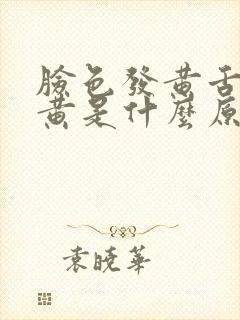 臉色發黃舌
黃是什麼原
袁曉華